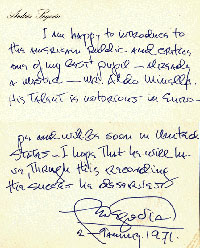 Andrés Segovia
I am happy to introduce to
the american public - and critics
one of my best pupil - already
a master - Mr Aldo Minella.
His talent is notorious in Euro-
pa and will be soon in United
States - I hope that he will ha-
ve, through this recording
the success he deserves
2 - January, 1971.